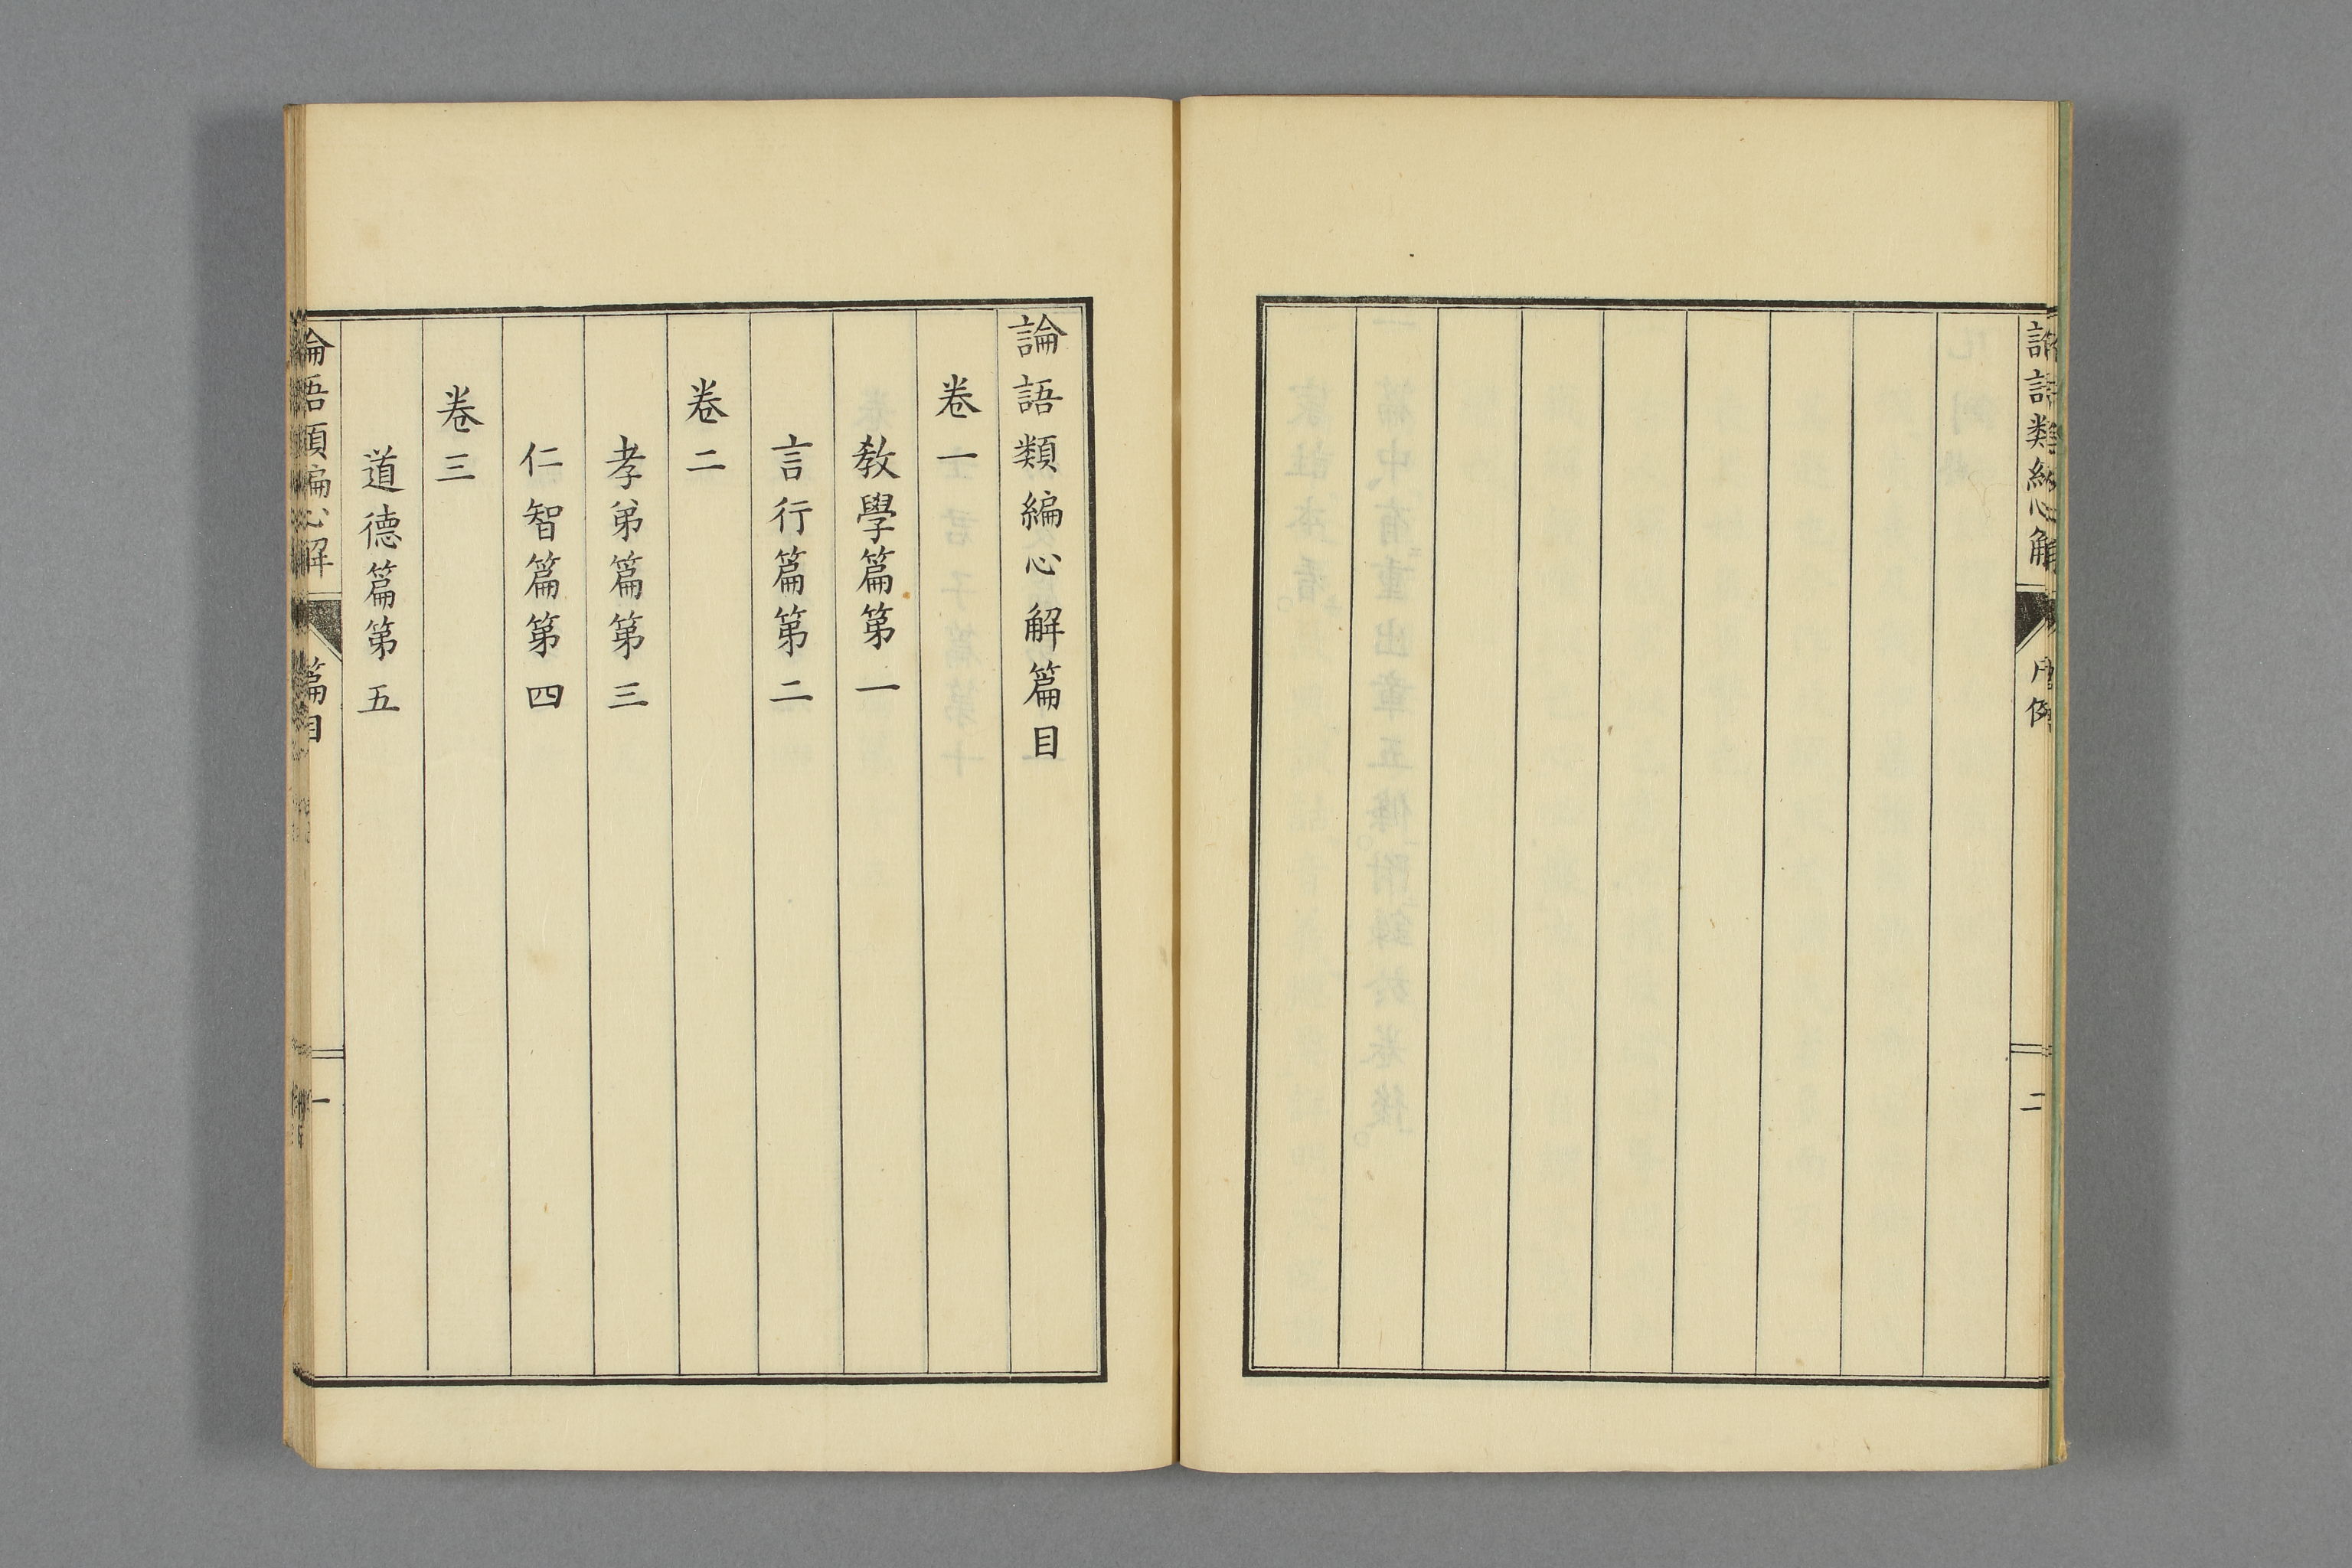 論語類編心解
凡例
二
論語類編心解篇目
卷一
教學篇第一
言行篇第二
卷二
孝弟篇第三
仁智篇第四
卷三
道德篇第五
論語類編心解
篇目
一